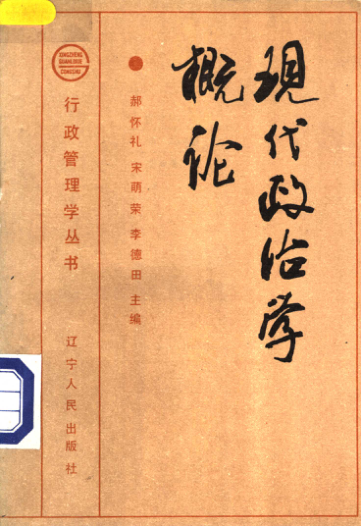 现代政治学
概论
郝怀礼 宋萌荣 李德田 主编
XINGZHENG
GUANLIXUE
CONGSHU
行政管理学丛书
辽宁人民出版社